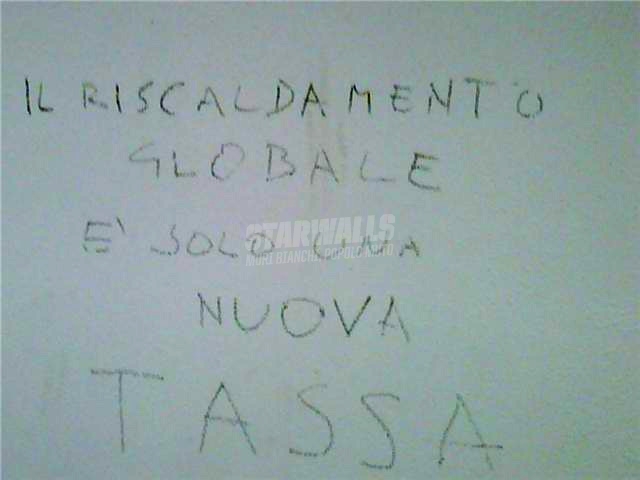 IL RISCALDAMENTO
GLOBALE
E' SOLO UNA
STARWALLS
MURI BIANCHI, POPOLO MUTO
NUOVA
TASSA